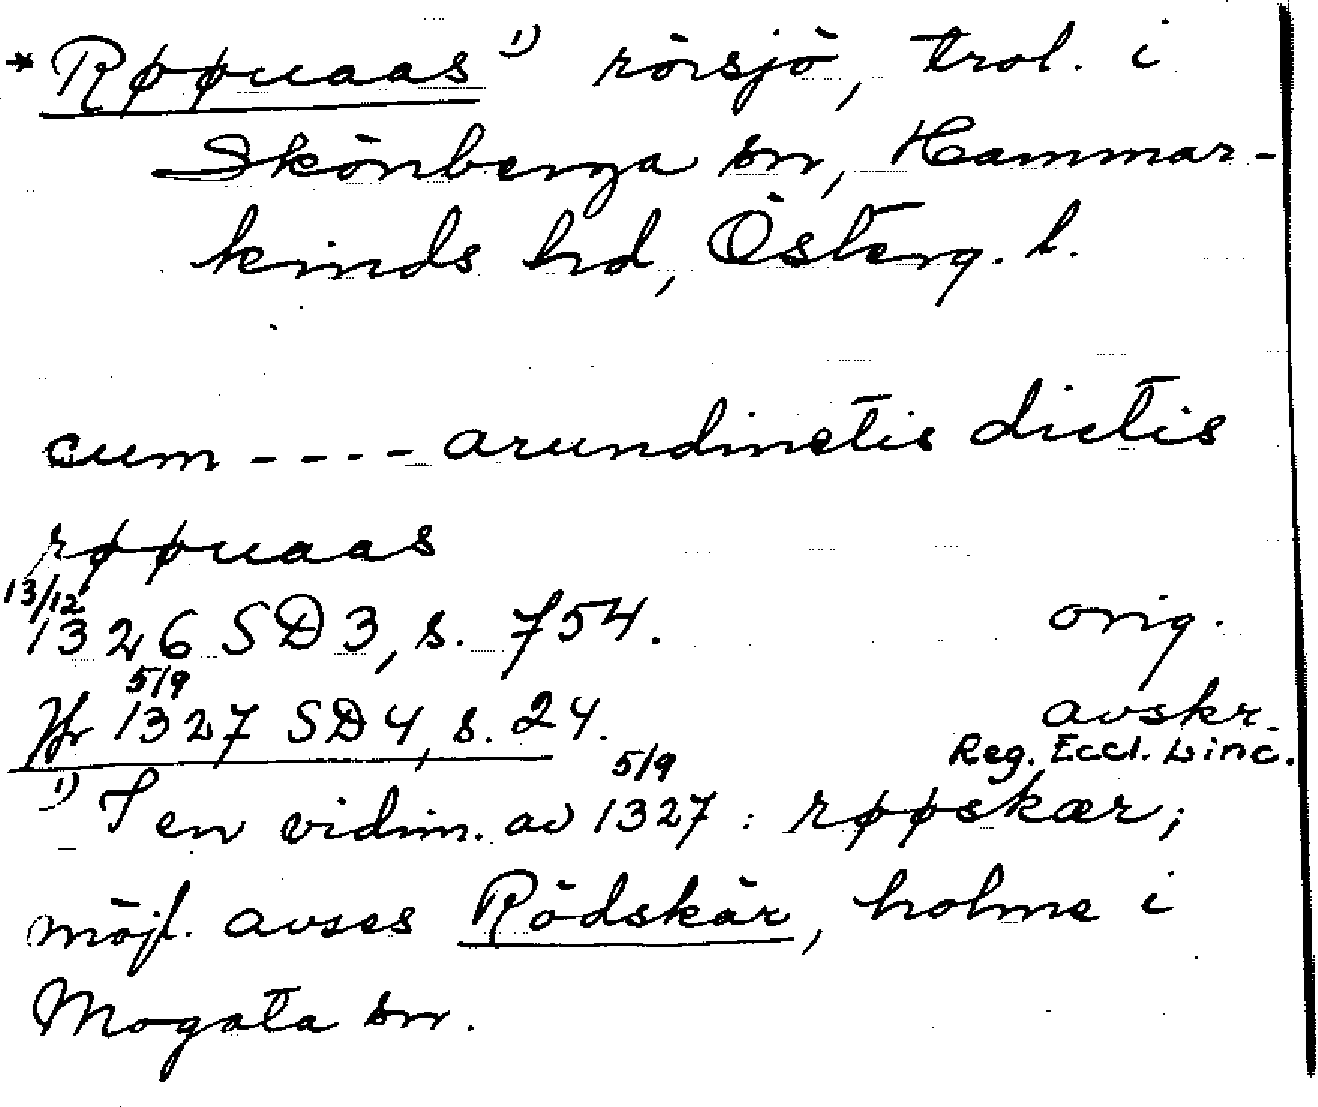 * Røøuaas 1) rörsjö, trol. i
Skönberga sn, Hammar-
kinds hd, Österg. l.
cum ---- arundinetis dictis
røøuaas
13/12
1326 SD 3, s. 754. orig.
5/9
Jfr 1327 SD 4, s. 24. avskr.
Reg. Eccl. Linc.
5/9
1) I en vidim. av 1327 : røøskær;
möjl. avses Rödskär, holme i
Mogata sn.